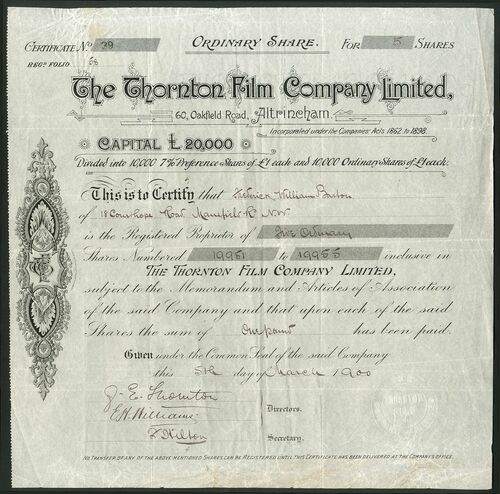 ORDINARY SHARE.
CERTIFICATE No 39 FOR 5 SHARES
REGD FOLIO 58
The Thornton Film Company Limited,
60, Oakfield Road, Altrincham.
Incorporated under the Companies Acts 1862 to 1898.
CAPITAL £ 20,000
Divided into 10,000 7% Preference Shares of £1 each and 10,000 Ordinary Shares of £1 each.
This is to Certify that Frederick William Barton
of 18 Mansfield Rd N.W.
is the Registered Proprietor of Five Ordinary
Shares Numbered 19951 to 19955 inclusive in
THE THORNTON FILM COMPANY LIMITED,
subject to the Memorandum and Articles of Association
of the said Company and that upon each of the said
Shares the sum of One pound has been paid.
Given under the Common Seal of the said Company
this 5th day of March 1900
J. E. Thornton
E.H. Williams Directors.
F Hilton Secretary.
NO TRANSFER OF ANY OF THE ABOVE MENTIONED SHARES CAN BE REGISTERED UNTIL THIS CERTIFICATE HAS BEEN DELIVERED AT THE COMPANY'S OFFICE.